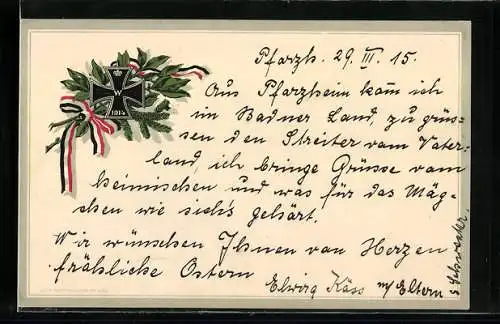 Pfarzh. 29. III. 15.
W
1914
Aus Pfarzheim kam̄ ich
im Badner Land, zu grüs-
sen den Streiter vam Vater-
land, ich bringe Grüsse vam
heimischen und was für das Mäg-
dchen wie sich's gehärt.
Wir wünschen Ihnen van Herzen
fråhliche Ostern
Elwira Käss m/ Eltern
s Schwester.